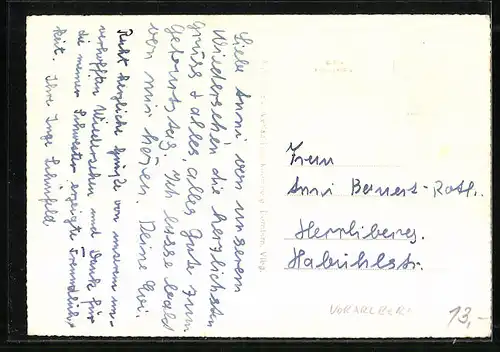 Liebe Anni von unserem
Wiedersehen die herzlichsten
Grüsse & alles, alles Gute zum
Geburtstag. Ich lasse bald
von mir hören. Deine Evi.
Recht herzliche Grüße von unserem un-
verhofften Wiedersehen und Dank für
die meiner Schwester erzeigte Freundlich-
keit. Ihre Inge
Anni
Herrliberg.
Habühlstr.
VORARLBERG
13,-